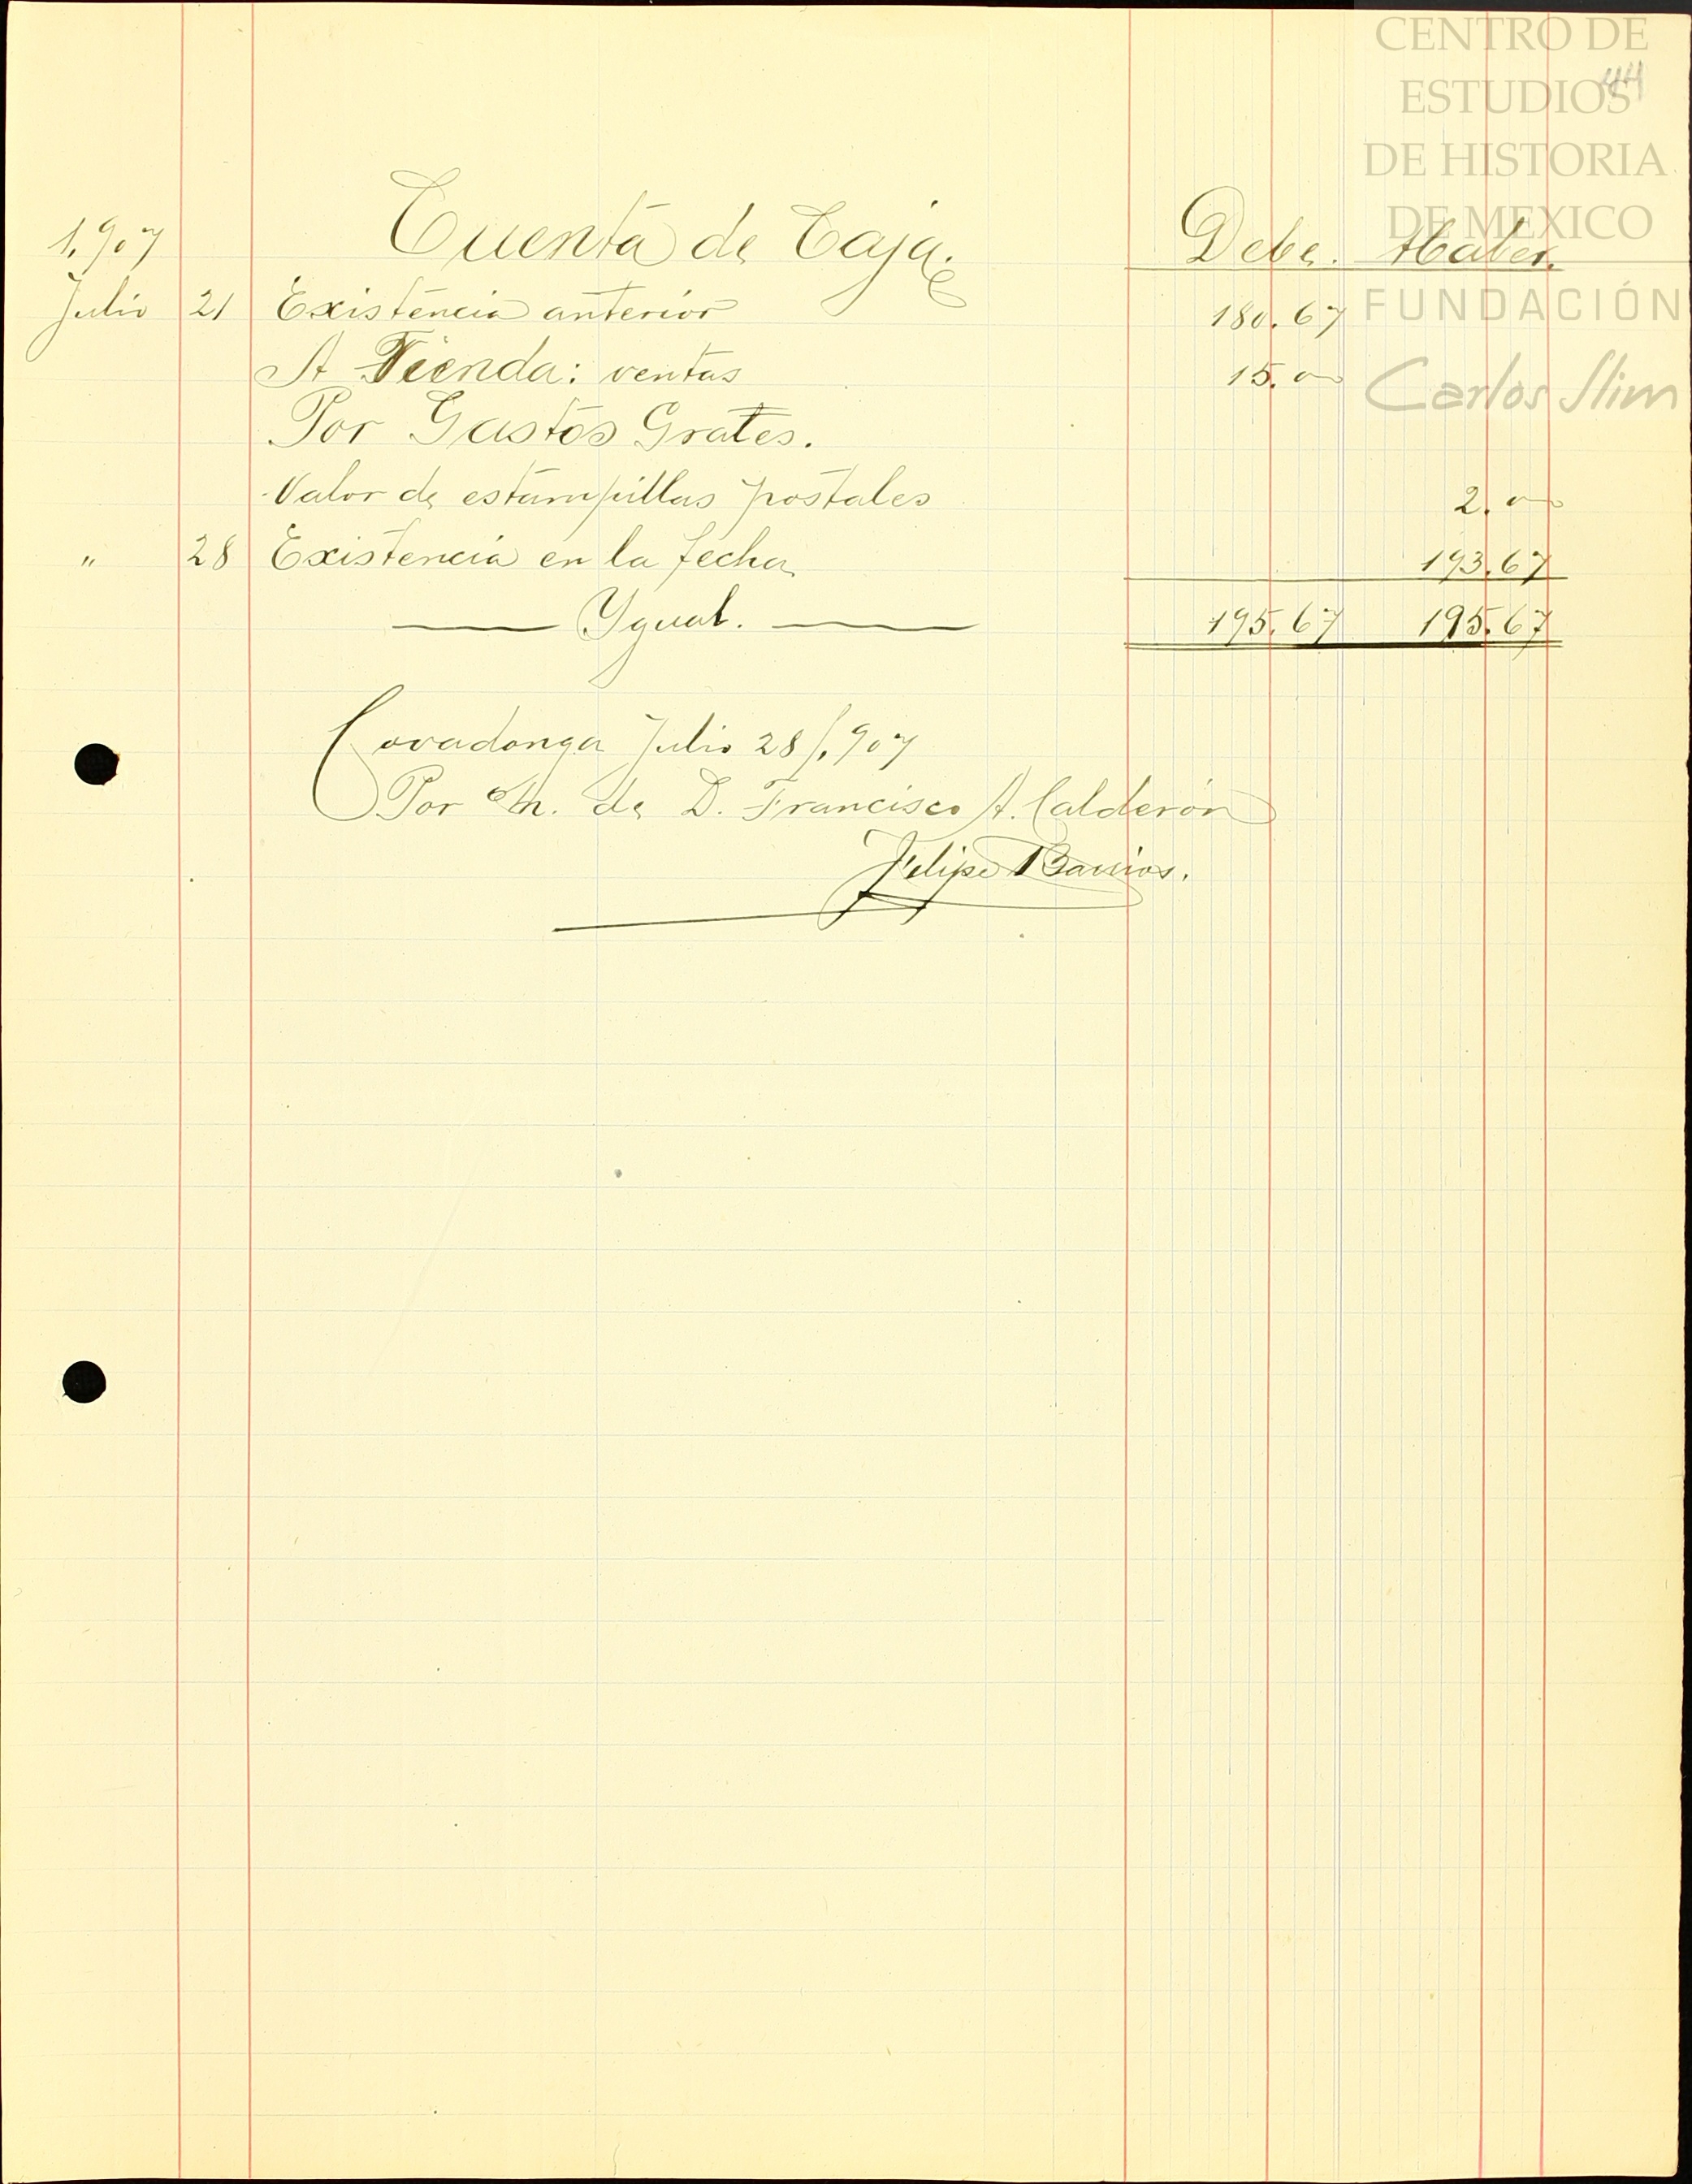 CENTRO DE
ESTUDIOS
44
DE HISTORIA
DE MEXICO
FUNDACIÓN
Carlos Slim
1.907 Cuenta de Caja. Debe. Haber.
Julio 21 Existencia anterior 180.67
A Tienda: ventas 15.00
Por Gastos Grales.
Valor de estampillas postales 2.00
" 28 Existencia en la fecha 193.67
Ygual. 195.67 195.67
Covadonga Julio 28/.907
Por m. de D. Francisco A. Calderón
Felipe Barrios.